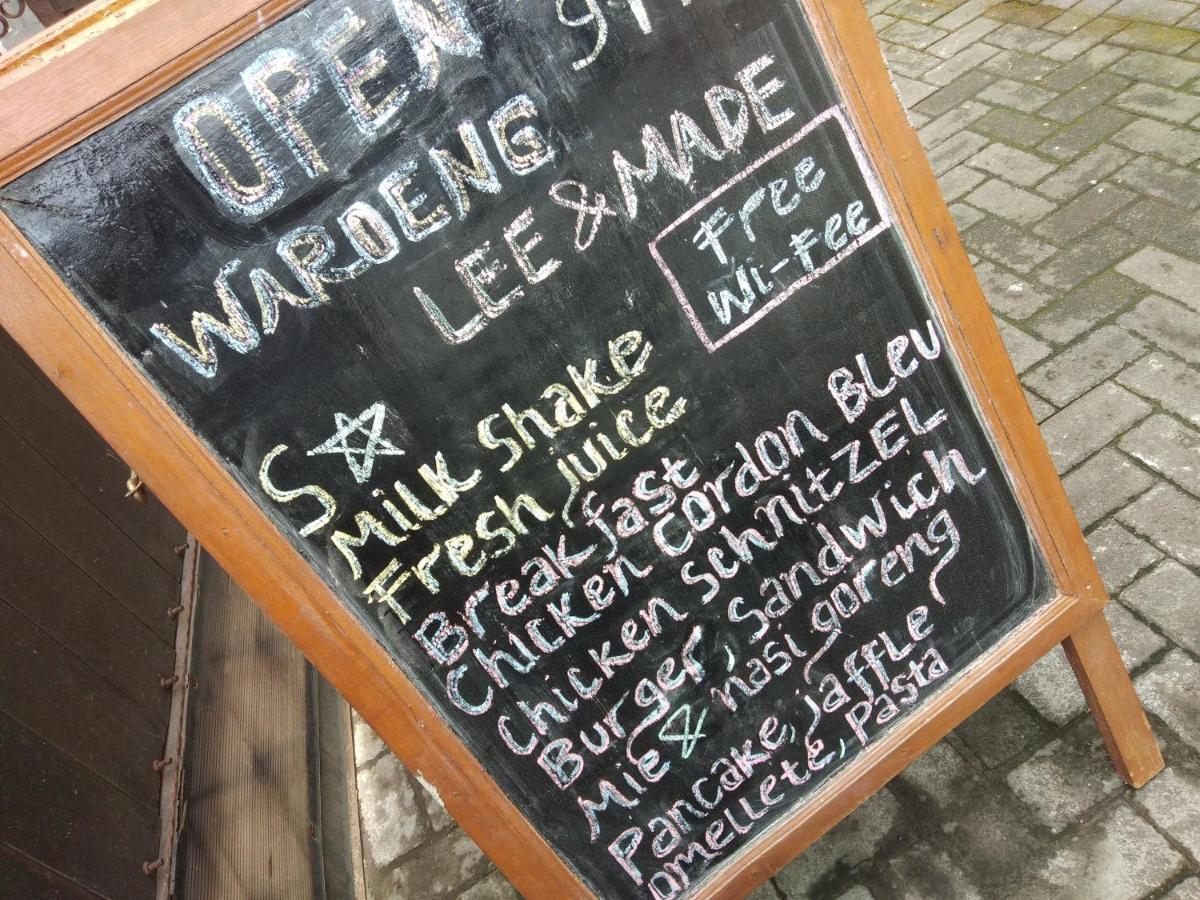 OPEN
WAROENG
LEE & MADE
Free
Wi-Fee
S☆
Milk Shake
Fresh juice
Breakfast
Chicken Cordon Bleu
Chicken SchnitZEL
Burger, Sandwich
Mie & nasi goreng
Pancake, jaffle
omellete, pasta